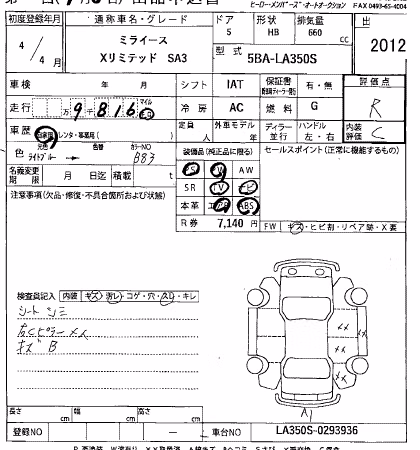 ヒーロー・メンバーズ・オートオークション FAX 0493-65-4004
初度登録年月 通称車名・グレード ドア 形状 排気量 出 2012
4/4 ミライース 5 HB 660 cc
Xリミテッド SA3 型式 5BA-LA350S
車検 年 月 シフト IAT 保証書 有・無 評価点
走行 9 816 マイル 冷房 AC 燃料 G R
車歴 自家用 レンタ・事業用( ) 定員 人 外車モデル 年 ディーラー 並行 ハンドル 左・右 内装評価 C
色 元色 ライトブルー → 色替 カラーNO B83 装備品(純正品に限る) セールスポイント(正常に機能するもの)
名義変更期限 月 日迄 積載 t PS PW AW
注意事項(欠品・修復・不具合箇所および状態) SR TV ナビ
本革 エアB ABS
R券 7,140 円 FW キズ・ヒビ割・リペア跡・X要
検査員記入 内装 キズ・汚レ・コゲ・穴・スレ・キレ
シート シミ
右Cピラー メ人
キズ B
長さ cm 幅 cm 高さ cm
登録NO — 車台NO LA350S-0293936
A1